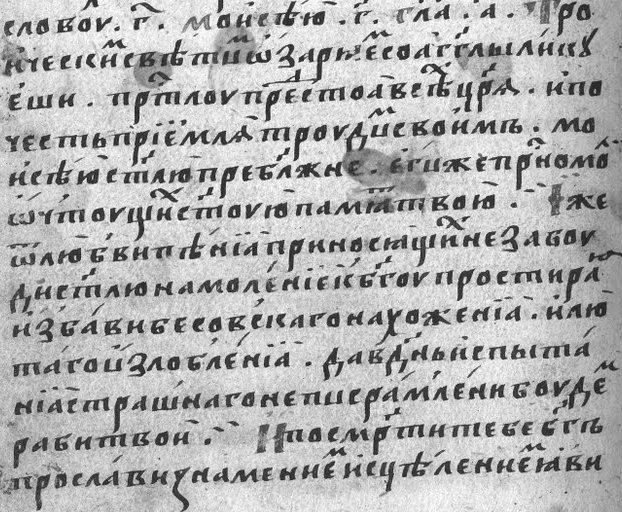 словоу . г҃ . мо́исѣ́ю . г҃ . гла́ . а҃ . Тро
и́чески́мсвѣ́тимⷪ҇ ѡ҆заре́мсоа́гг҃лылику
е́ши . прⷭ҇тлоу прⷭ҇тоавсѣ́хцр҃ѧ . и҆по
честьпрїе́млѧ троудⷨ҇исвои́мъ . мо
и́сѣ́юст҃лю преблⷤне . е́гиⷤеⷤпрⷭ҇номоⷧ
ѡ҆чтоущи́хст҃оую па́мѧтвою . Иже
ѿ лю́бви пѣ́нїа приносѧщи́х незабоу
ди ст҃лю на моле́нїе къ бг҃оу простираѧ
и҆зба́ви бесо́вскаго нахоже́нїа . и҆ лю
та́го ѡ҆злобле́нїа . Дав дн҃ь и҆спыта́
нїа стра́шнаго непосра́млени боудеⷨ
раби твои . И по сме́рти тебе бг҃ъ
просла́ви знаменнеⷨ исцѣ́леннеⷨ ꙗ҆ви